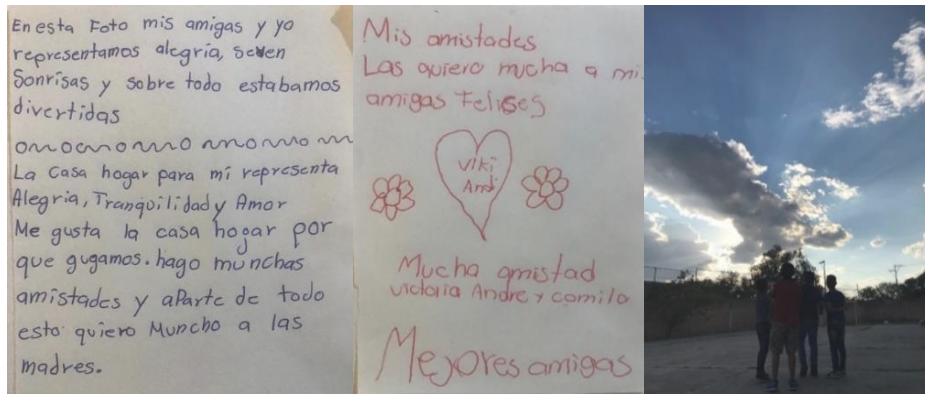 En esta Foto mis amigas y yo
representamos alegría, se ven
Sonrisas y sobre todo estabamos
divertidas
La Casa hogar para mí representa
Alegria, Tranquilidad y Amor
Me gusta la casa hogar por
que gugamos. hago munchas
amistades y aparte de todo
esto quiero Muncho a las
madres.
Mis amistades
Las quiero mucha a mi
amigas Felises
Viki
Andi
Mucha amistad
victoria Andre y camila
Mejores amigas